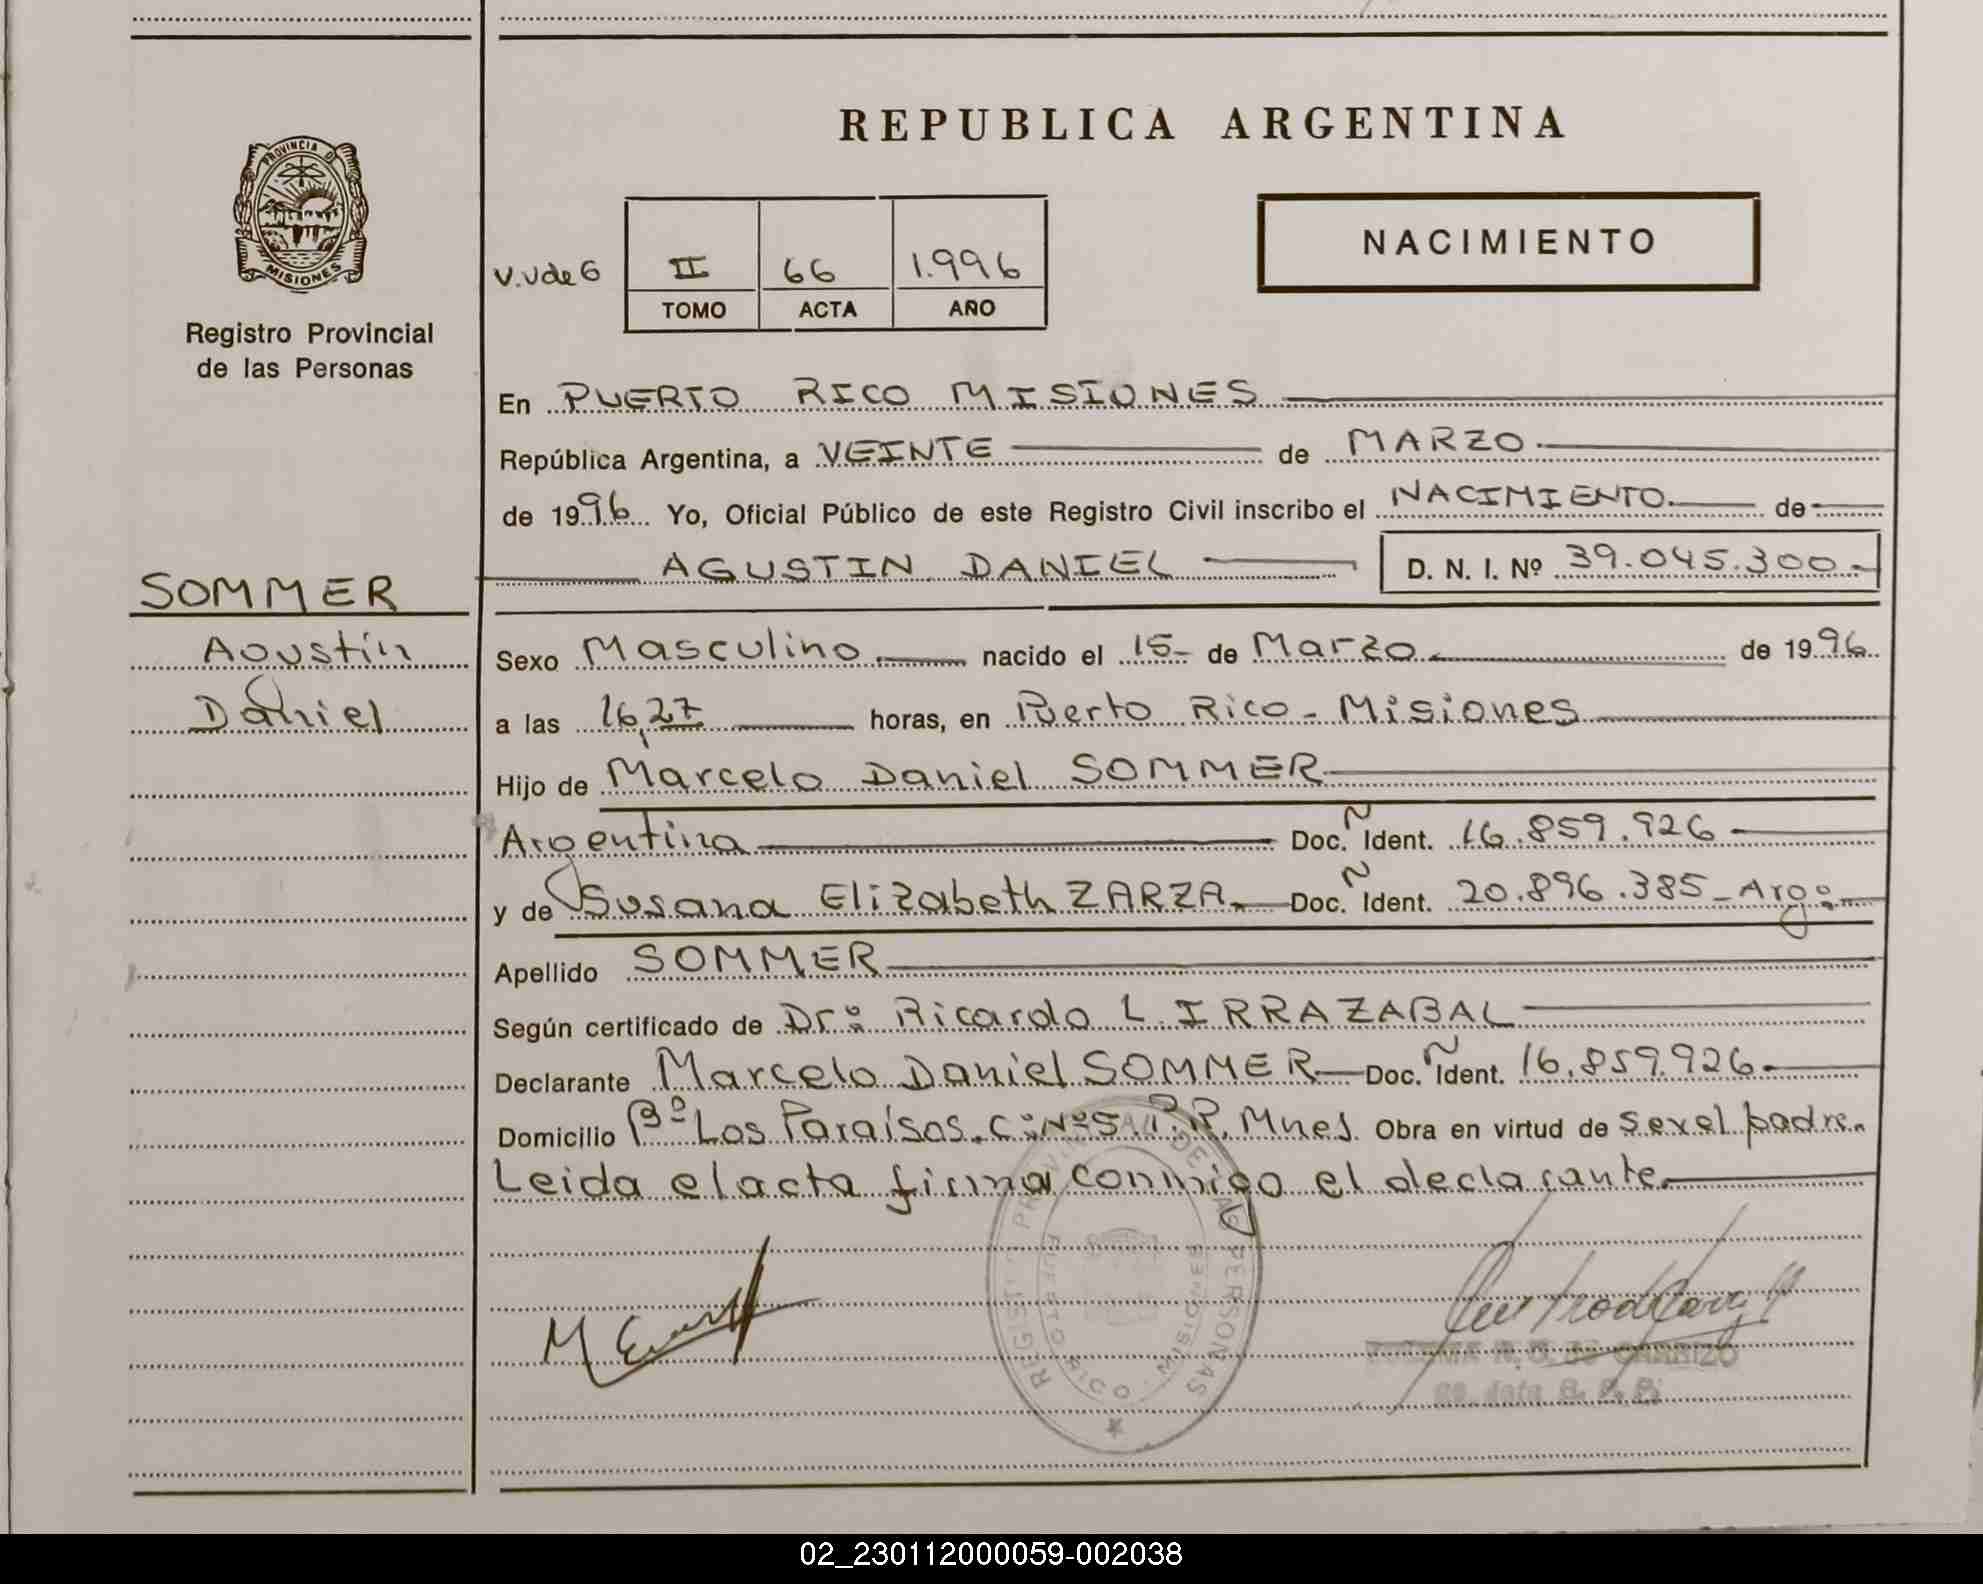 REPUBLICA ARGENTINA
PROVINCIA DE
MISIONES
Registro Provincial
de las Personas
NACIMIENTO
II 66 1.996
TOMO ACTA AÑO
En PUERTO RICO MISIONES
República Argentina, a VEINTE de MARZO
de 1996 Yo, Oficial Público de este Registro Civil inscribo el NACIMIENTO de
AGUSTIN DANIEL D. N. I. Nº 39.045.300-
SOMMER
Agustín
Daniel
Sexo Masculino nacido el 15- de Marzo de 1996
a las 16,27 horas, en Puerto Rico - Misiones
Hijo de Marcelo Daniel SOMMER
Argentina Doc. Ñ Ident. 16.859.926
y de Susana Elizabeth ZARZA Doc. Ñ Ident. 20.896.385 - Argº
Apellido SOMMER
Según certificado de Drº Ricardo L. IRRAZABAL
Declarante Marcelo Daniel SOMMER Doc. Ñ Ident. 16.859.926
Domicilio Bº Los Paraísos. Cº Nº 5 P.R. Mnes. Obra en virtud de ser el padre.
Leida el acta firma conmigo el declarante
REGISTRO PROVINCIAL DE LAS PERSONAS
PUERTO RICO - MISIONES
02_230112000059-002038